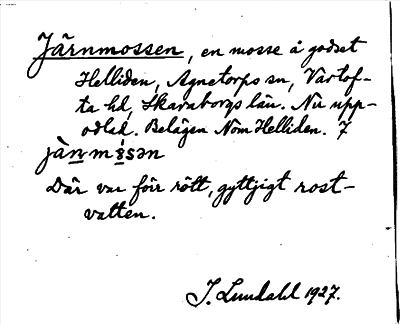 Järnmossen, en mosse å godset
Helliden, Agnetorps sn, Vartof-
ta hd, Skaraborgs län. Nu upp-
odlad. Belägen N om Helliden. 7
jànmɷ̀sən
Där var förr rött, gyttjigt rost-
vatten.
J. Lundahl 1927.